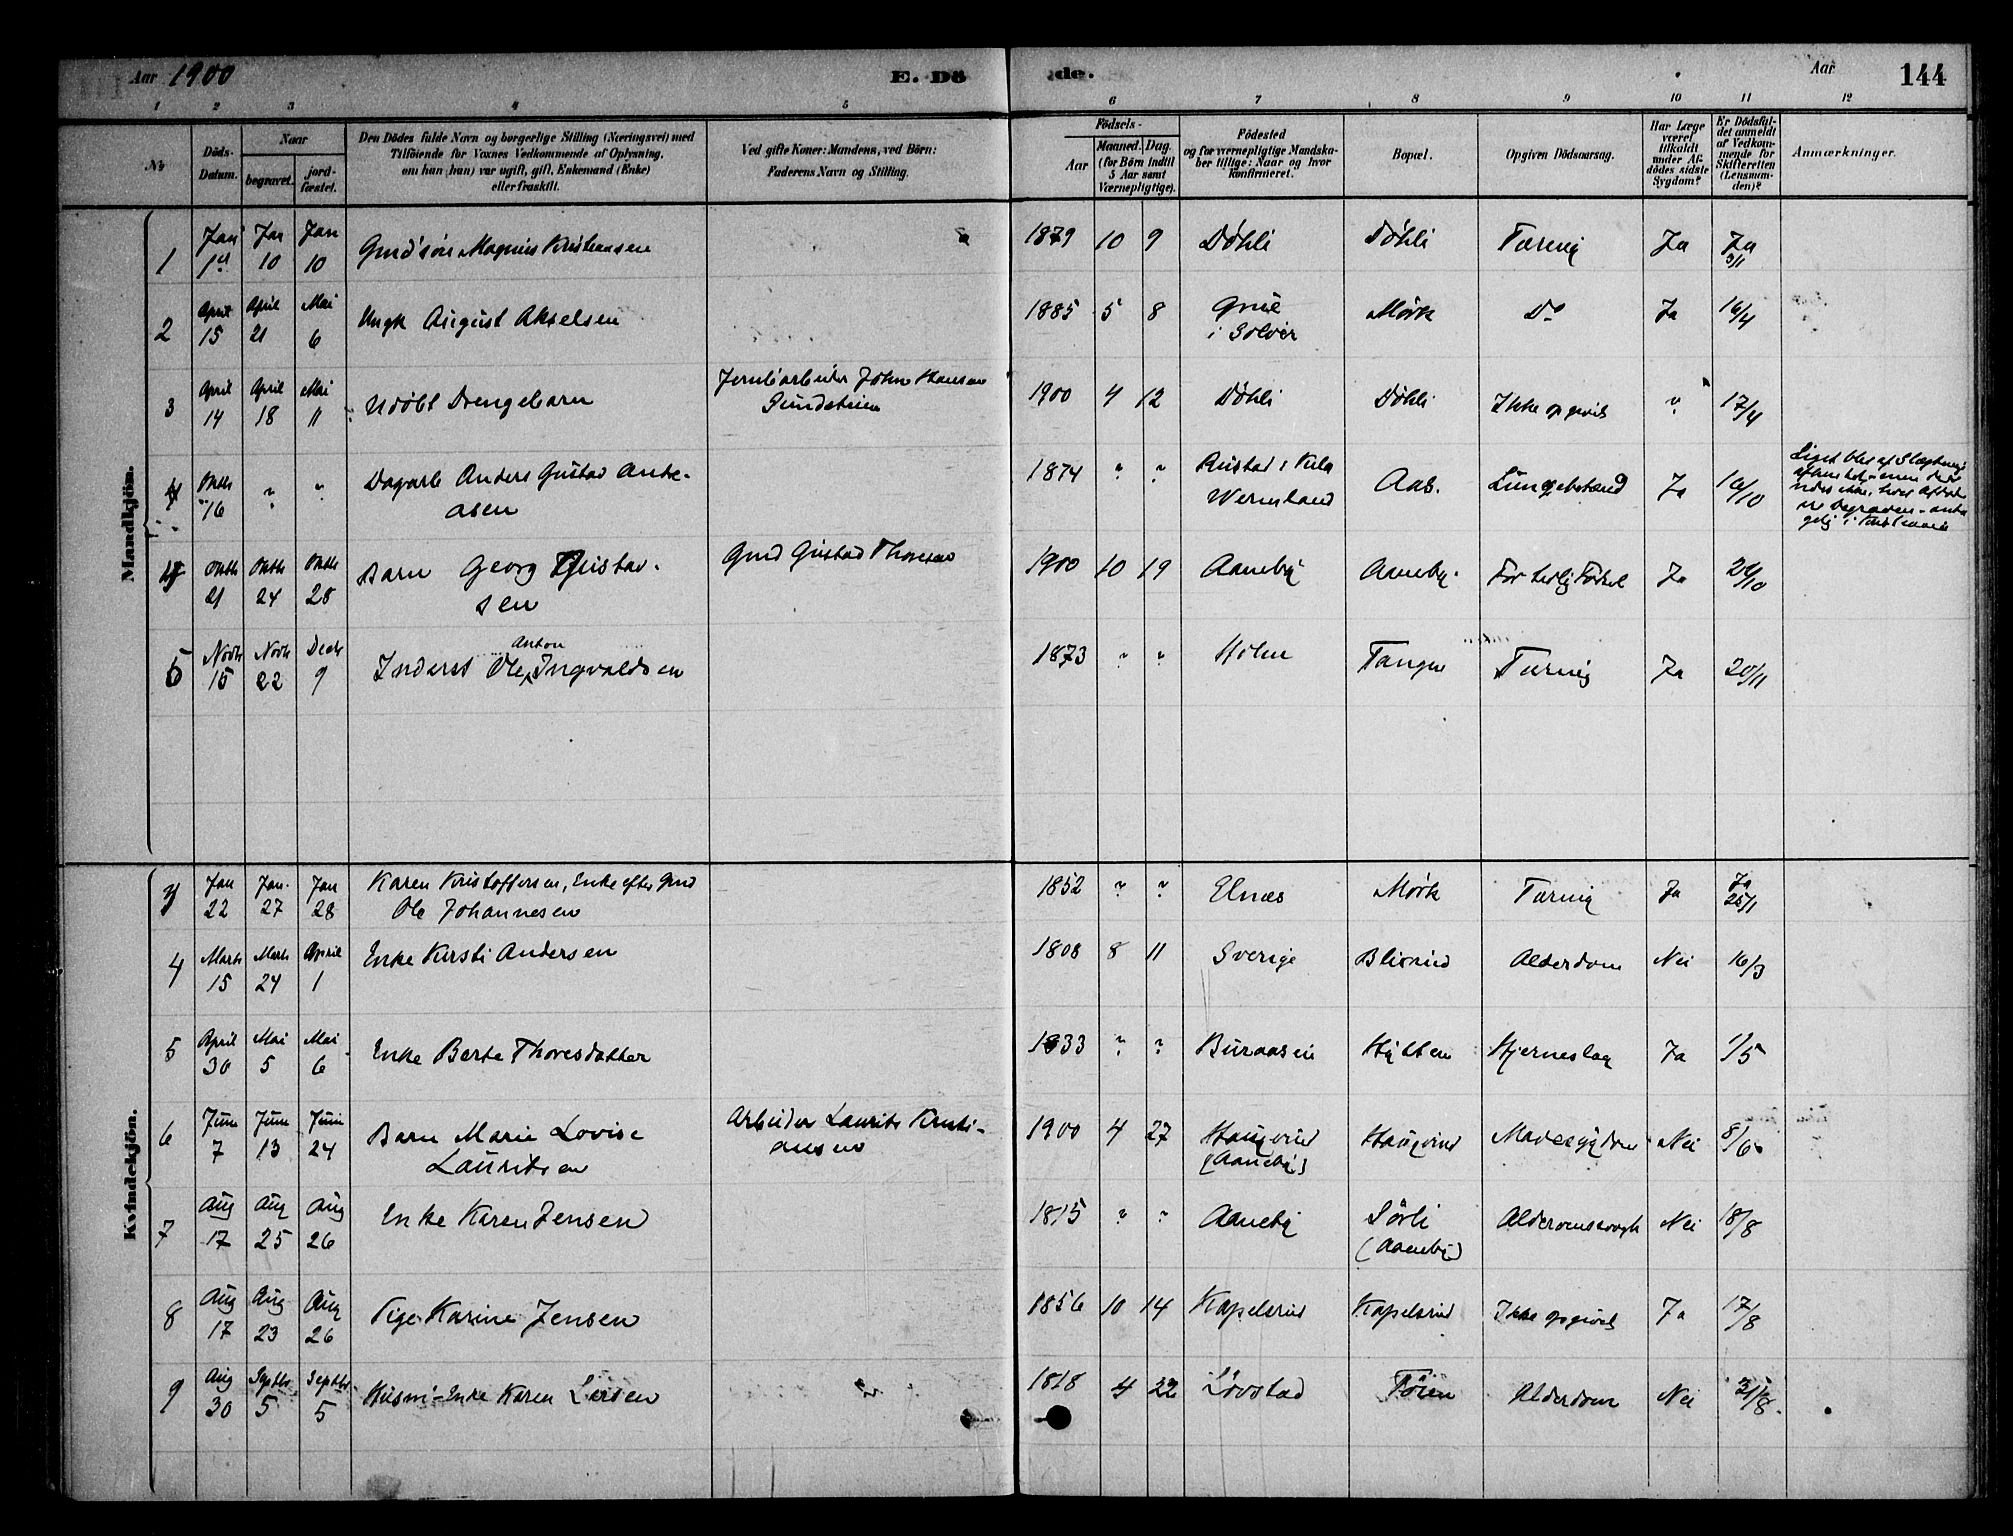 Aar 1900
E. Dö
de.
Aar
144
1 2 3 4 5 6 7 8 9 10 11 12
No
Döds-
Datum.
Naar
begravet.
jord-
fæstet.
Den Dödes fulde Navn og borgerlige Stilling (Næringsvei) med
Tilföiende for Voxnes Vedkommende af Oplysning,
om han (hun) var ugift, gift, Enkemand (Enke)
eller fraskilt.
Ved gifte Koner: Mandens, ved Börn:
Faderens Navn og Stilling.
Födsels-
Aar
Maaned. Dag.
(for Börn indtil
5 Aar samt
Værnepligtige).
Födested
og for værnepligtige Mandska-
ber tillige: Naar og hvor
konfirmeret.
Bopæl.
Opgiven Dödsaarsag.
Har Læge
været
tilkaldt
under Af-
dödes sidste
Sygdom?
Er Dödsfal-
det anmeldt
af Vedkom-
mende for
Skifteretten
(Lensman-
den)?
Anmærkninger.
Mandkjön.
1 Jan Jan Jan Grdsön Magnus Kristiansen 1879 10 9 Döhli Döhli Tæring Ja Ja
10 10
2 April April Mai Ungk August Akselsen 1885 5 8 Grue Mörk Do Ja 16/4
15 21 6 i Solör
3 April April Mai Udöbt Drengebarn Jernbarbeider Johan Hansen 1900 4 12 Döhli Döhli Ikke opgivet " 17/4
14 18 11
4 Oktb " " Dagarb Anders Gustav Ande- 1874 " " Aab. Ja 16/10
16 Wermland
Oktb Oktb Oktb Barn Georg Gustav- Grd Gustav Thoresen 1900 10 19 Aaneby Aaneby For tidlig Födsel Ja
21 24 28 sen
5 Novb Novb Decb Inderst Ole Anton Ingvaldsen 1873 " " Holm Tangen Tæring Ja 20/11
15 22 9
Kvindekjön.
3 Jan Jan. Jan Karen Kristoffersen, Enke efter Grd 1852 " " Elnæs Mörk Tæring Ja Ja
22 27 28 Ole Johannesen 25/1
4 Marts Marts April Enke Kirsti Andersen 1808 8 11 Sverige Alderdom Nei 16/3
15 24 1
5 April Mai Mai Enke Berte Thoresdatter 1833 " " Buraasen Hytten Hjerneslag Ja 1/5
30 5 6
6 Juni Juni Juni Barn Marie Lovise Arbeider Laurits Kristi- 1900 4 27 Haugerud Haugerud Mavesygdom Nei 8/6
7 13 24 Lauritsen ansen (Aaneby)
7 Aug Aug Aug Enke Karen Jensen 1815 " " Aaneby Sörli Nei 18/8
17 25 26 (Aaneby)
8 Aug Aug Aug Pige Karine Jensen 1856 10 14 Kapelsrud Kapelsrud Ikke opgivet Ja 17/8
17 23 26
9 Aug Septbr Septbr Husm-Enke Karen Larsen " 1818 4 22 Lövstad Töien Alderdom Nei 31/8
30 5 5